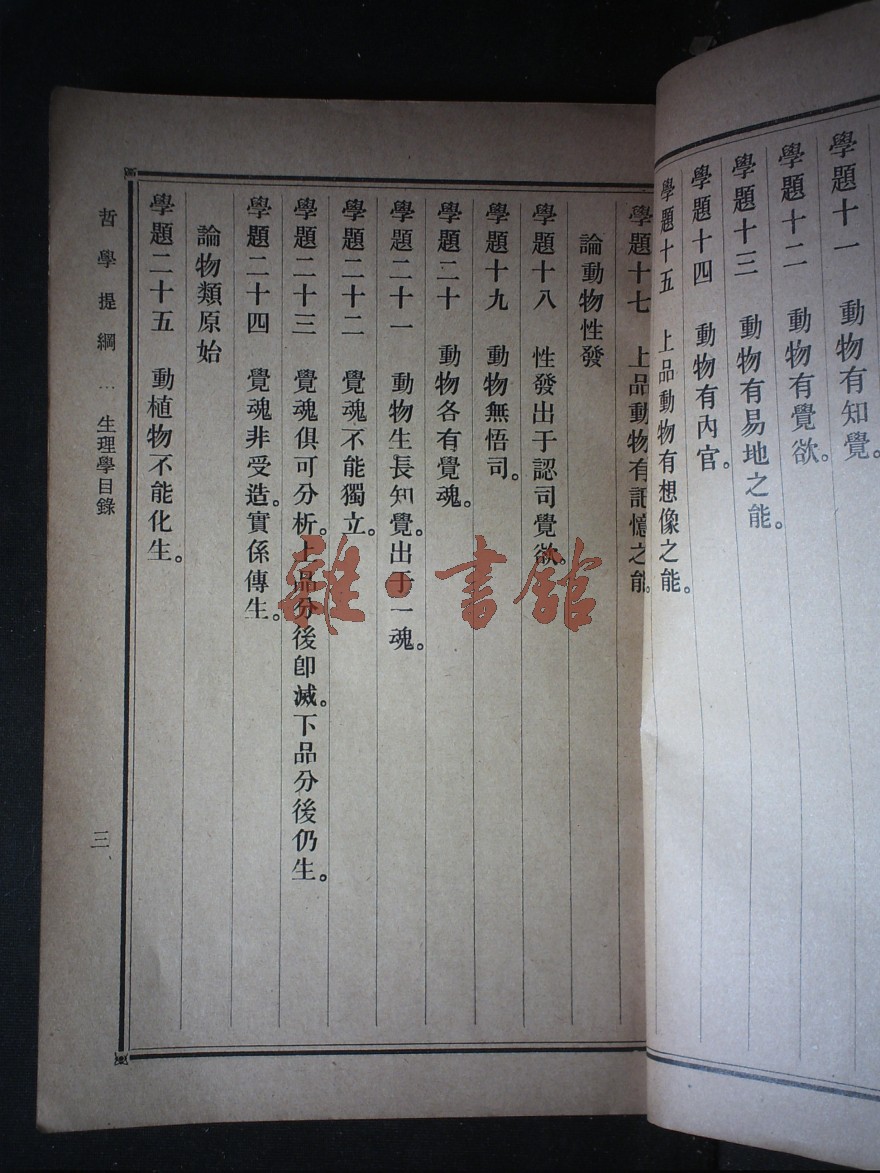 學題十一　動物有知覺。
學題十二　動物有覺欲。
學題十三　動物有易地之能。
學題十四　動物有內官。
學題十五　上品動物有想像之能。
學題十七　上品動物有記憶之能。
論動物性發
學題十八　性發出于認司覺欲。
學題十九　動物無悟司。
學題二十　動物各有覺魂。
學題二十一　動物生長知覺。出于一魂。
學題二十二　覺魂不能獨立。
學題二十三　覺魂俱可分析。上品分後卽滅。下品分後仍生。
學題二十四　覺魂非受造。實係傳生。
論物類原始
學題二十五　動植物不能化生。
哲學提綱…生理學目錄
三
雜·書館